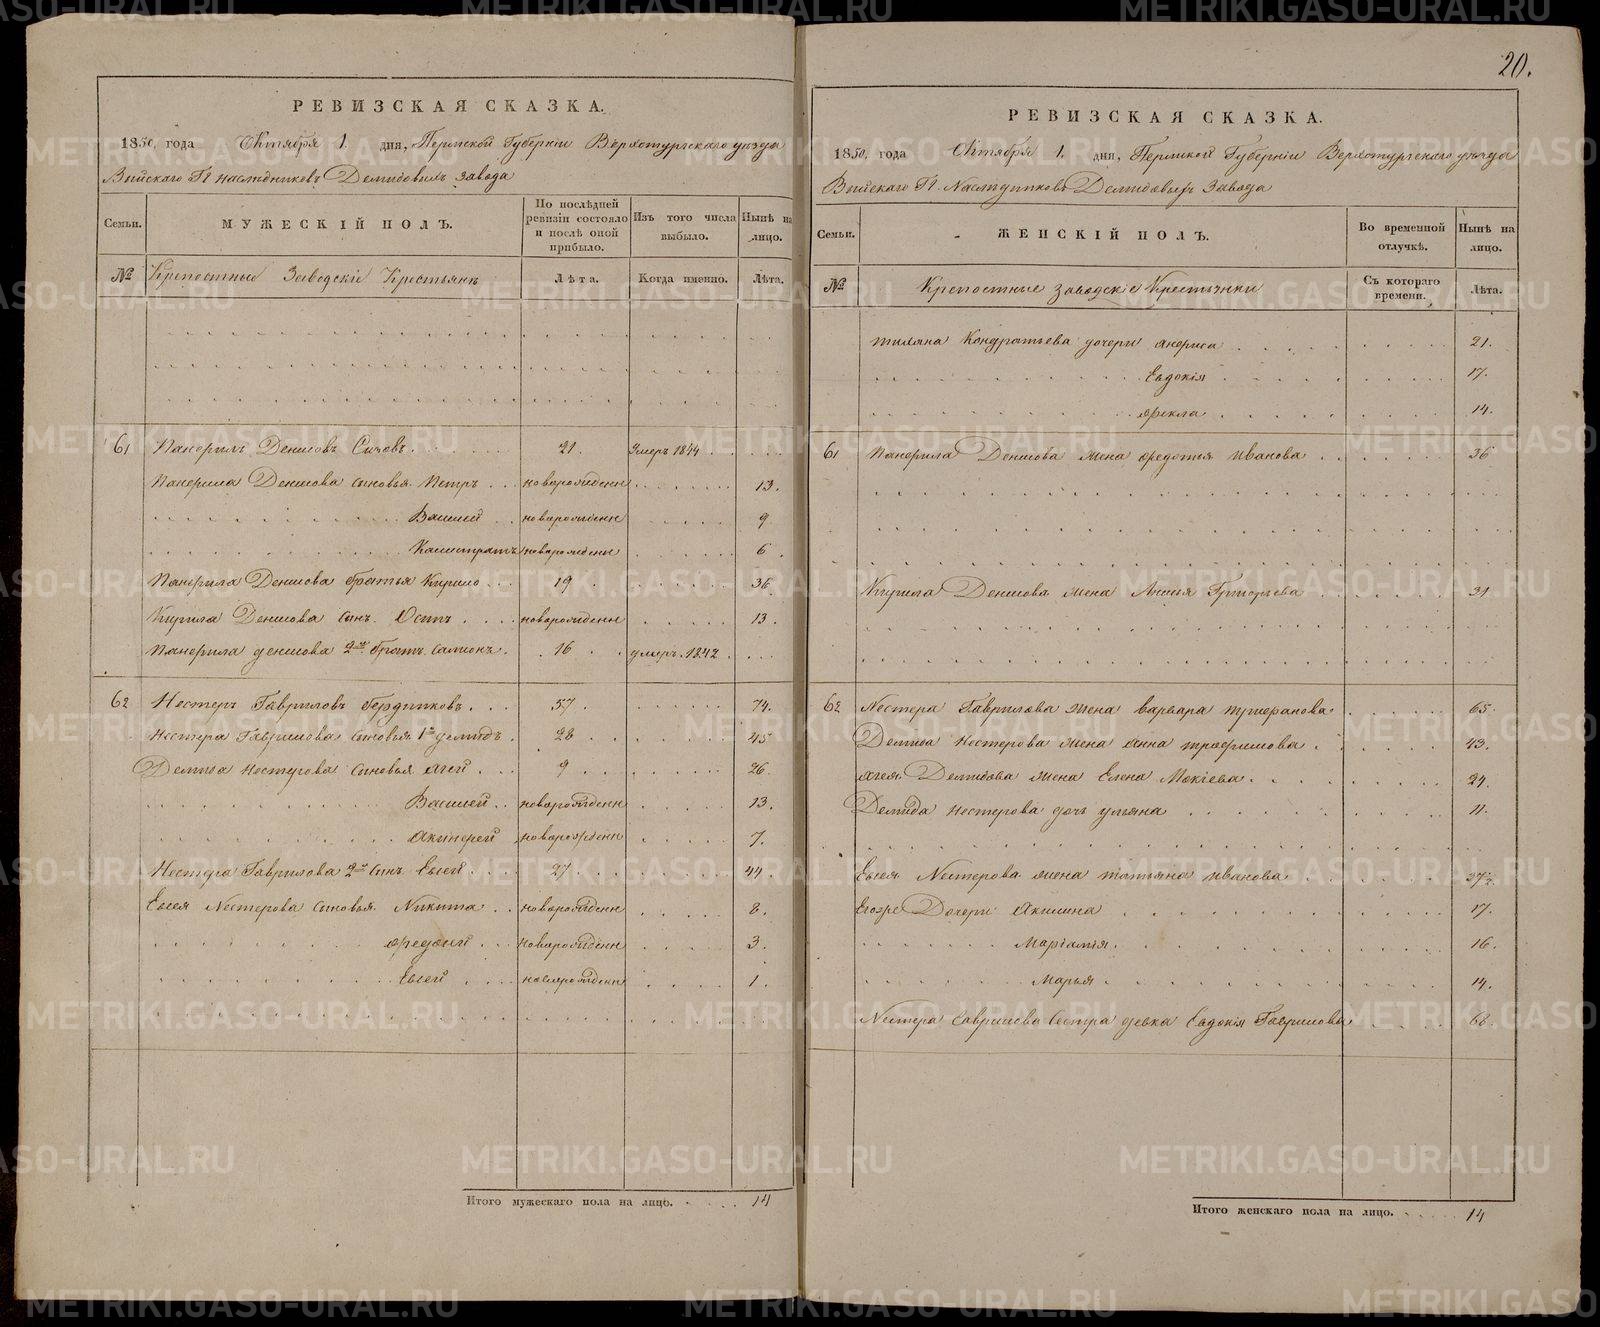 РЕВИЗСКАЯ СКАЗКА.
1850, года Октября 1. дня, Пермской Губерніи Верхотурскаго уѣзда
Выйскаго Гг. наслѣдниковъ Демидовыхъ завода
Семьи. МУЖЕСКІЙ ПОЛЪ. По послѣдней ревизіи состояло и послѣ оной прибыло. Изъ того числа выбыло. Нынѣ на лицо.
№ Крѣпостные Заводскіе Крестьяне Лѣта. Когда именно. Лѣта.
61 Панфилъ Денисовъ 21. умеръ 1844
Панфила Денисова сыновья Петръ новорожденн 13.
Василей новорожденн 9
Калистратъ новорожденн 6.
Панфила Денисова братья Кирило 19 36.
Кирила Денисова сынъ Осипъ новорожденн 13.
Панфила Денисова 2й братъ Самсонъ 16 умеръ 1842
62 Нестеръ Гавриловъ 57 74.
Нестера Гаврилова сыновья 1й Демидъ 28 45
Демида Нестерова сыновья Агей 9 26.
Василей новорожденн 13.
Акинфей новорожденн 7.
Нестера Гаврилова 2й сынъ Евсей 27 44.
Евсея Нестерова сыновья Никита новорожденн 8.
новорожденн 3.
Евсей новорожденн 1.
Итого мужескаго пола на лицо. 14
20.
РЕВИЗСКАЯ СКАЗКА.
1850, года Октября 1. дня, Пермской Губерніи Верхотурскаго уѣзда
Выйскаго Гг. Наслѣдниковъ Демидовыхъ Завода
Семьи. ЖЕНСКІЙ ПОЛЪ. Во временной отлучкѣ. Нынѣ на лицо.
№ Крѣпостные заводскіе Крестьянки Съ котораго времени. Лѣта.
Кондратьева дочери 21.
Евдокія 17.
Фекла 14.
61 Панфила Денисова жена Федотья Иванова 36
Кирила Денисова жена Григорьева 31
62 Нестера Гаврилова жена Варвара 65.
Демида Нестерова жена Анна Трофимова 43.
Агея Демидова жена Елена Мокіева 24.
Демида Нестерова дочь Ульяна 11.
Евсея Нестерова жена Татьяна Иванова 37
Егоже Дочери Акилина 17.
Маріамія 16
Марья 14.
Нестера Гаврилова сестра девка Евдокія Гаврилова 68.
Итого женскаго пола на лицо. 14
METRIKI.GASO-URAL.RU